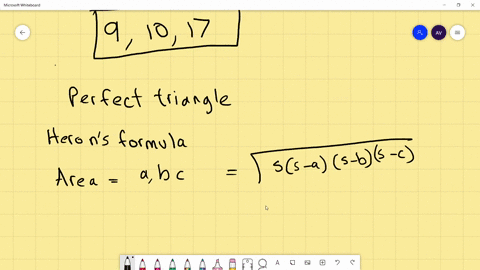 Microsoft Whiteboard
AV
9, 10, 17
Perfect triangle
Heron's formula
Area = a, b c = √s(s-a)(s-b)(s-c)